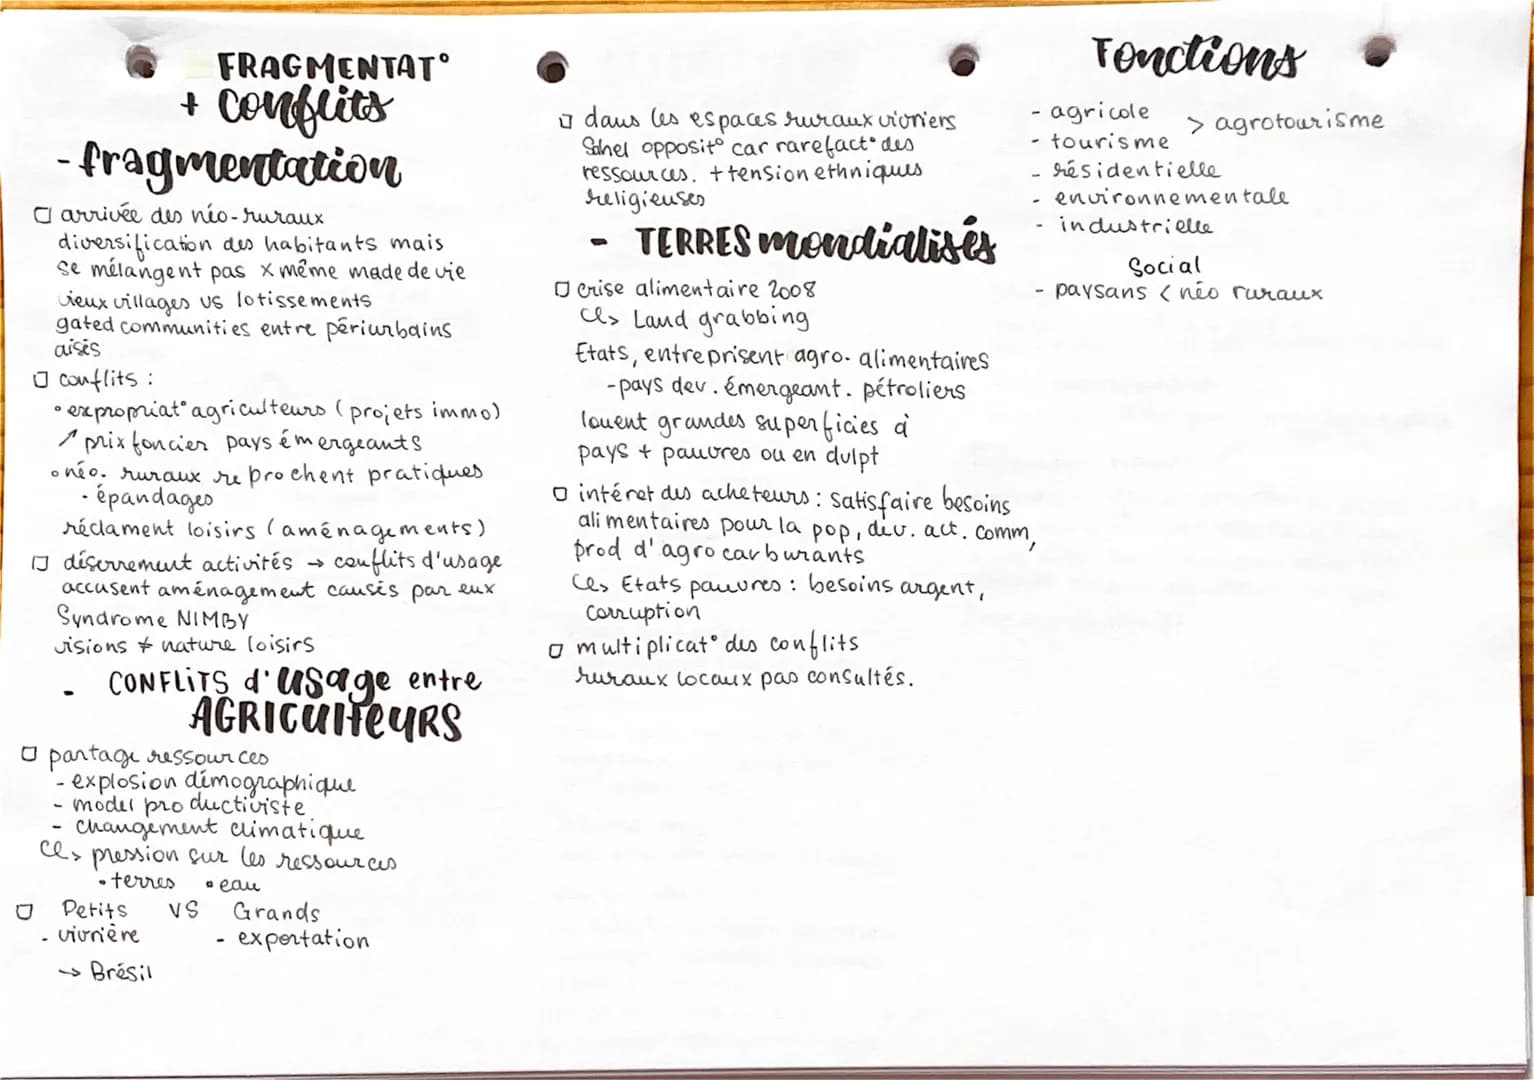 FRAGMENTAT°
+ conflits
- fragmentation
□ arrivée des néo-ruraux
diversification des habitants mais
se mélangent pas x même made de vie
vieux villages vs lotissements
gated communities entre périurbains
aisés
□ conflits :
• expropriat° agriculteurs (projets immo)
↗ prix foncier pays émergeants
• néo. ruraux reprochent pratiques
- épandages
réclament loisirs (aménagements)
□ déserrement activités → conflits d'usage
accusent aménagement causés par eux
Syndrome NIMBY
visions ≠ nature loisirs
- CONFLITS d'usage entre
AGRICUlteURS
□ partage ressources
- explosion démographique
- model productiviste
- changement climatique
↳ pression sur les ressources
• terres • eau
□ Petits VS Grands
- vivrière - exportation
→ Brésil
□ dans les espaces ruraux vivriers
Sahel opposit° car rarefact° des
ressources. + tension ethniques
religieuses
- TERRES mondialisés
□ crise alimentaire 2008
↳ Land grabbing
Etats, entreprisent agro. alimentaires
- pays dev. émergeant. pétroliers
louent grandes superficies à
pays + pauvres ou en dvlpt
□ intéret des acheteurs : satisfaire besoins
alimentaires pour la pop, dev. act. comm,
prod d'agrocarburants
↳ Etats pauvres : besoins argent,
corruption
□ multiplicat° des conflits
ruraux locaux pas consultés.
Fonctions
- agricole
> agrotourisme
- tourisme
- résidentielle
- environnementale
- industrielle
Social
- paysans < néo ruraux